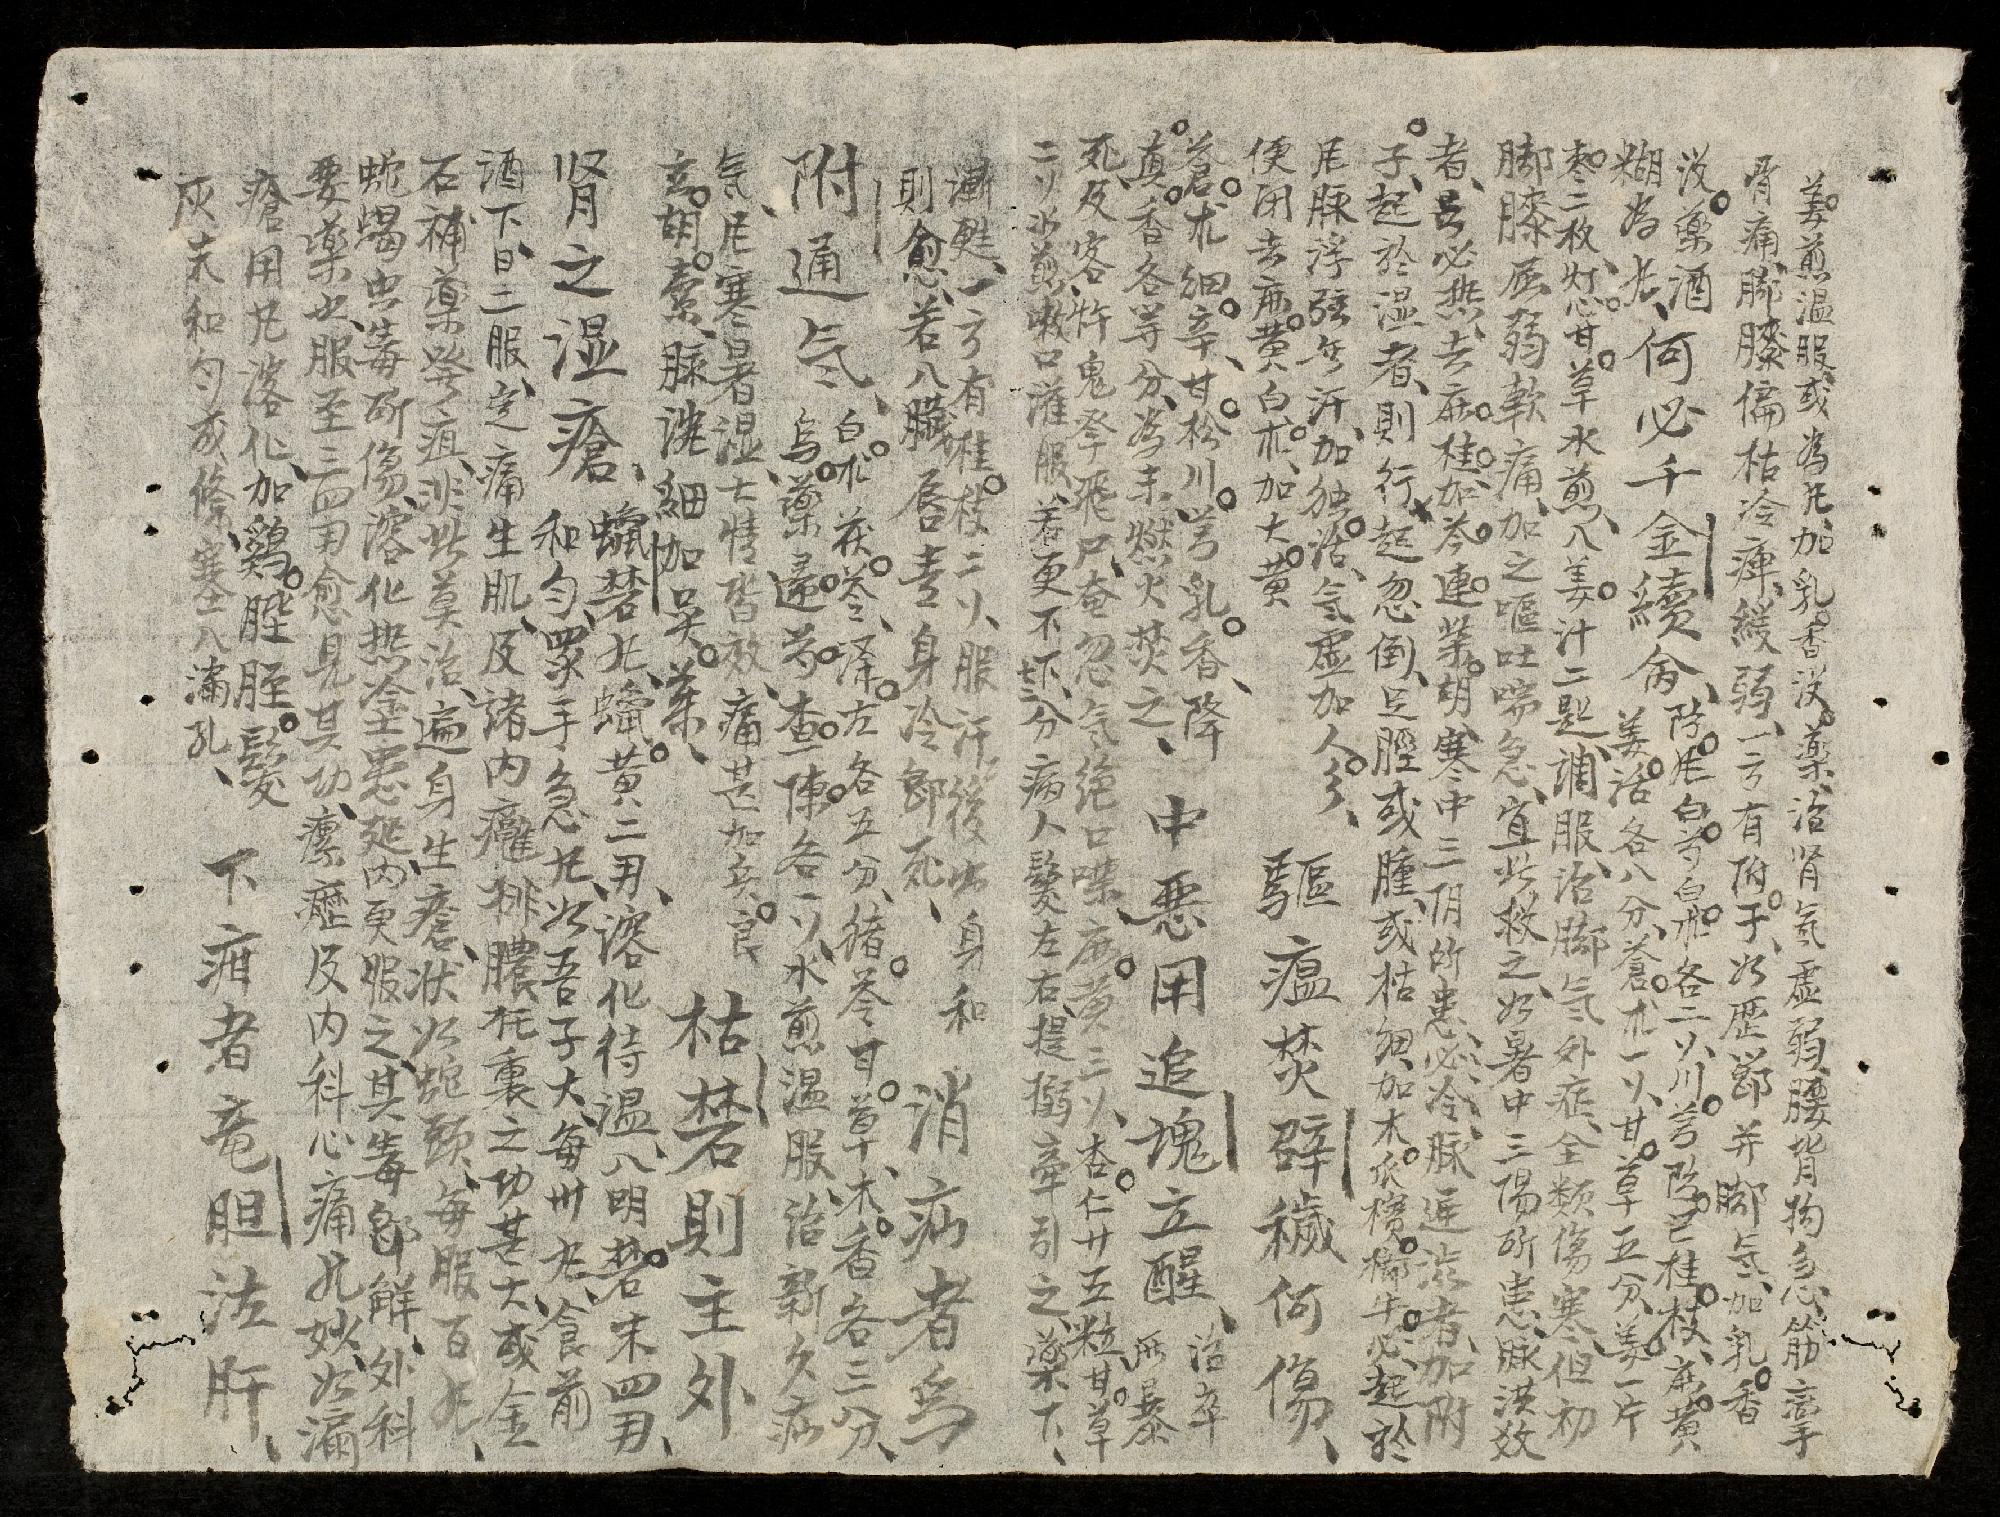 姜煎温服或為丸加乳香没薬治肾氣虚弱腰背拘急筋攣
骨痛脚膝偏枯冷痺緩弱一方有附子如歴節并脚気加乳香
没薬酒
糊為丸何必千金續命防風白芍白朮各二㕥川芎防已桂枝麻黄
姜活各八分蒼朮一㕥甘草五分姜一片
枣二枚煎甘草水煎入姜汁二匙調服治脚气外症全類傷寒但初
脚膝屈弱軟痛加之嘔吐喘急宜此救之如暑中三陽所患脉洪数
者、必热去麻桂加芩連柴胡寒中三阴所患必冷脉遅澁者加附
子起於湿者則行起忽倒足脛或腫或枯細加木瓜檳榔牛必起於
風脉浮弦無汗加独活氣虚加人參
便闭去麻黄白朮加大黄
驅瘟焚辟穢何傷
蒼朮細辛甘松川芎乳香降
真香各等分為末燃火焚之
中悪用追魂立醒治卒暴
死及客忤鬼擊飛尸奄忽气绝口噤麻黄三㕥杏仁廿五粒甘草
二㕥水煎嗽口灌服若更不下分病人髮左右提搦牽引之藥下
漸甦一方有桂枝二㕥服汗後出身和
則愈若入臟唇青身冷即死
消疝者為
附通气白朮茯苓泽左各五分猪苓甘草木香各三分
烏薬逥芎查陳各一㕥水煎温服治新久疝
気風寒暑湿七情皆效痛甚加良
玄胡索脉洗細加吴茱
枯礬則主外
肾之湿瘡蠟礬丸蠟黄二用溶化待温入明礬末四用
和匀眾手急丸如吾子大每卅丸食前
酒下日二服定痛生肌及諸内癰排膿托裏之功甚大或金
石補薬發疽非此莫治遍身生瘡状如蛇頭每服百丸
蛇蝎虫毒所傷溶化热塗患処内更服之其毒即解外科
要薬也服至三四用愈見其功瘰癧及内科心痛尤妙如漏
瘡用丸溶化加鷄膍胵髮
灰末和匀成條塞入漏孔
下疳者竜胆泣肝